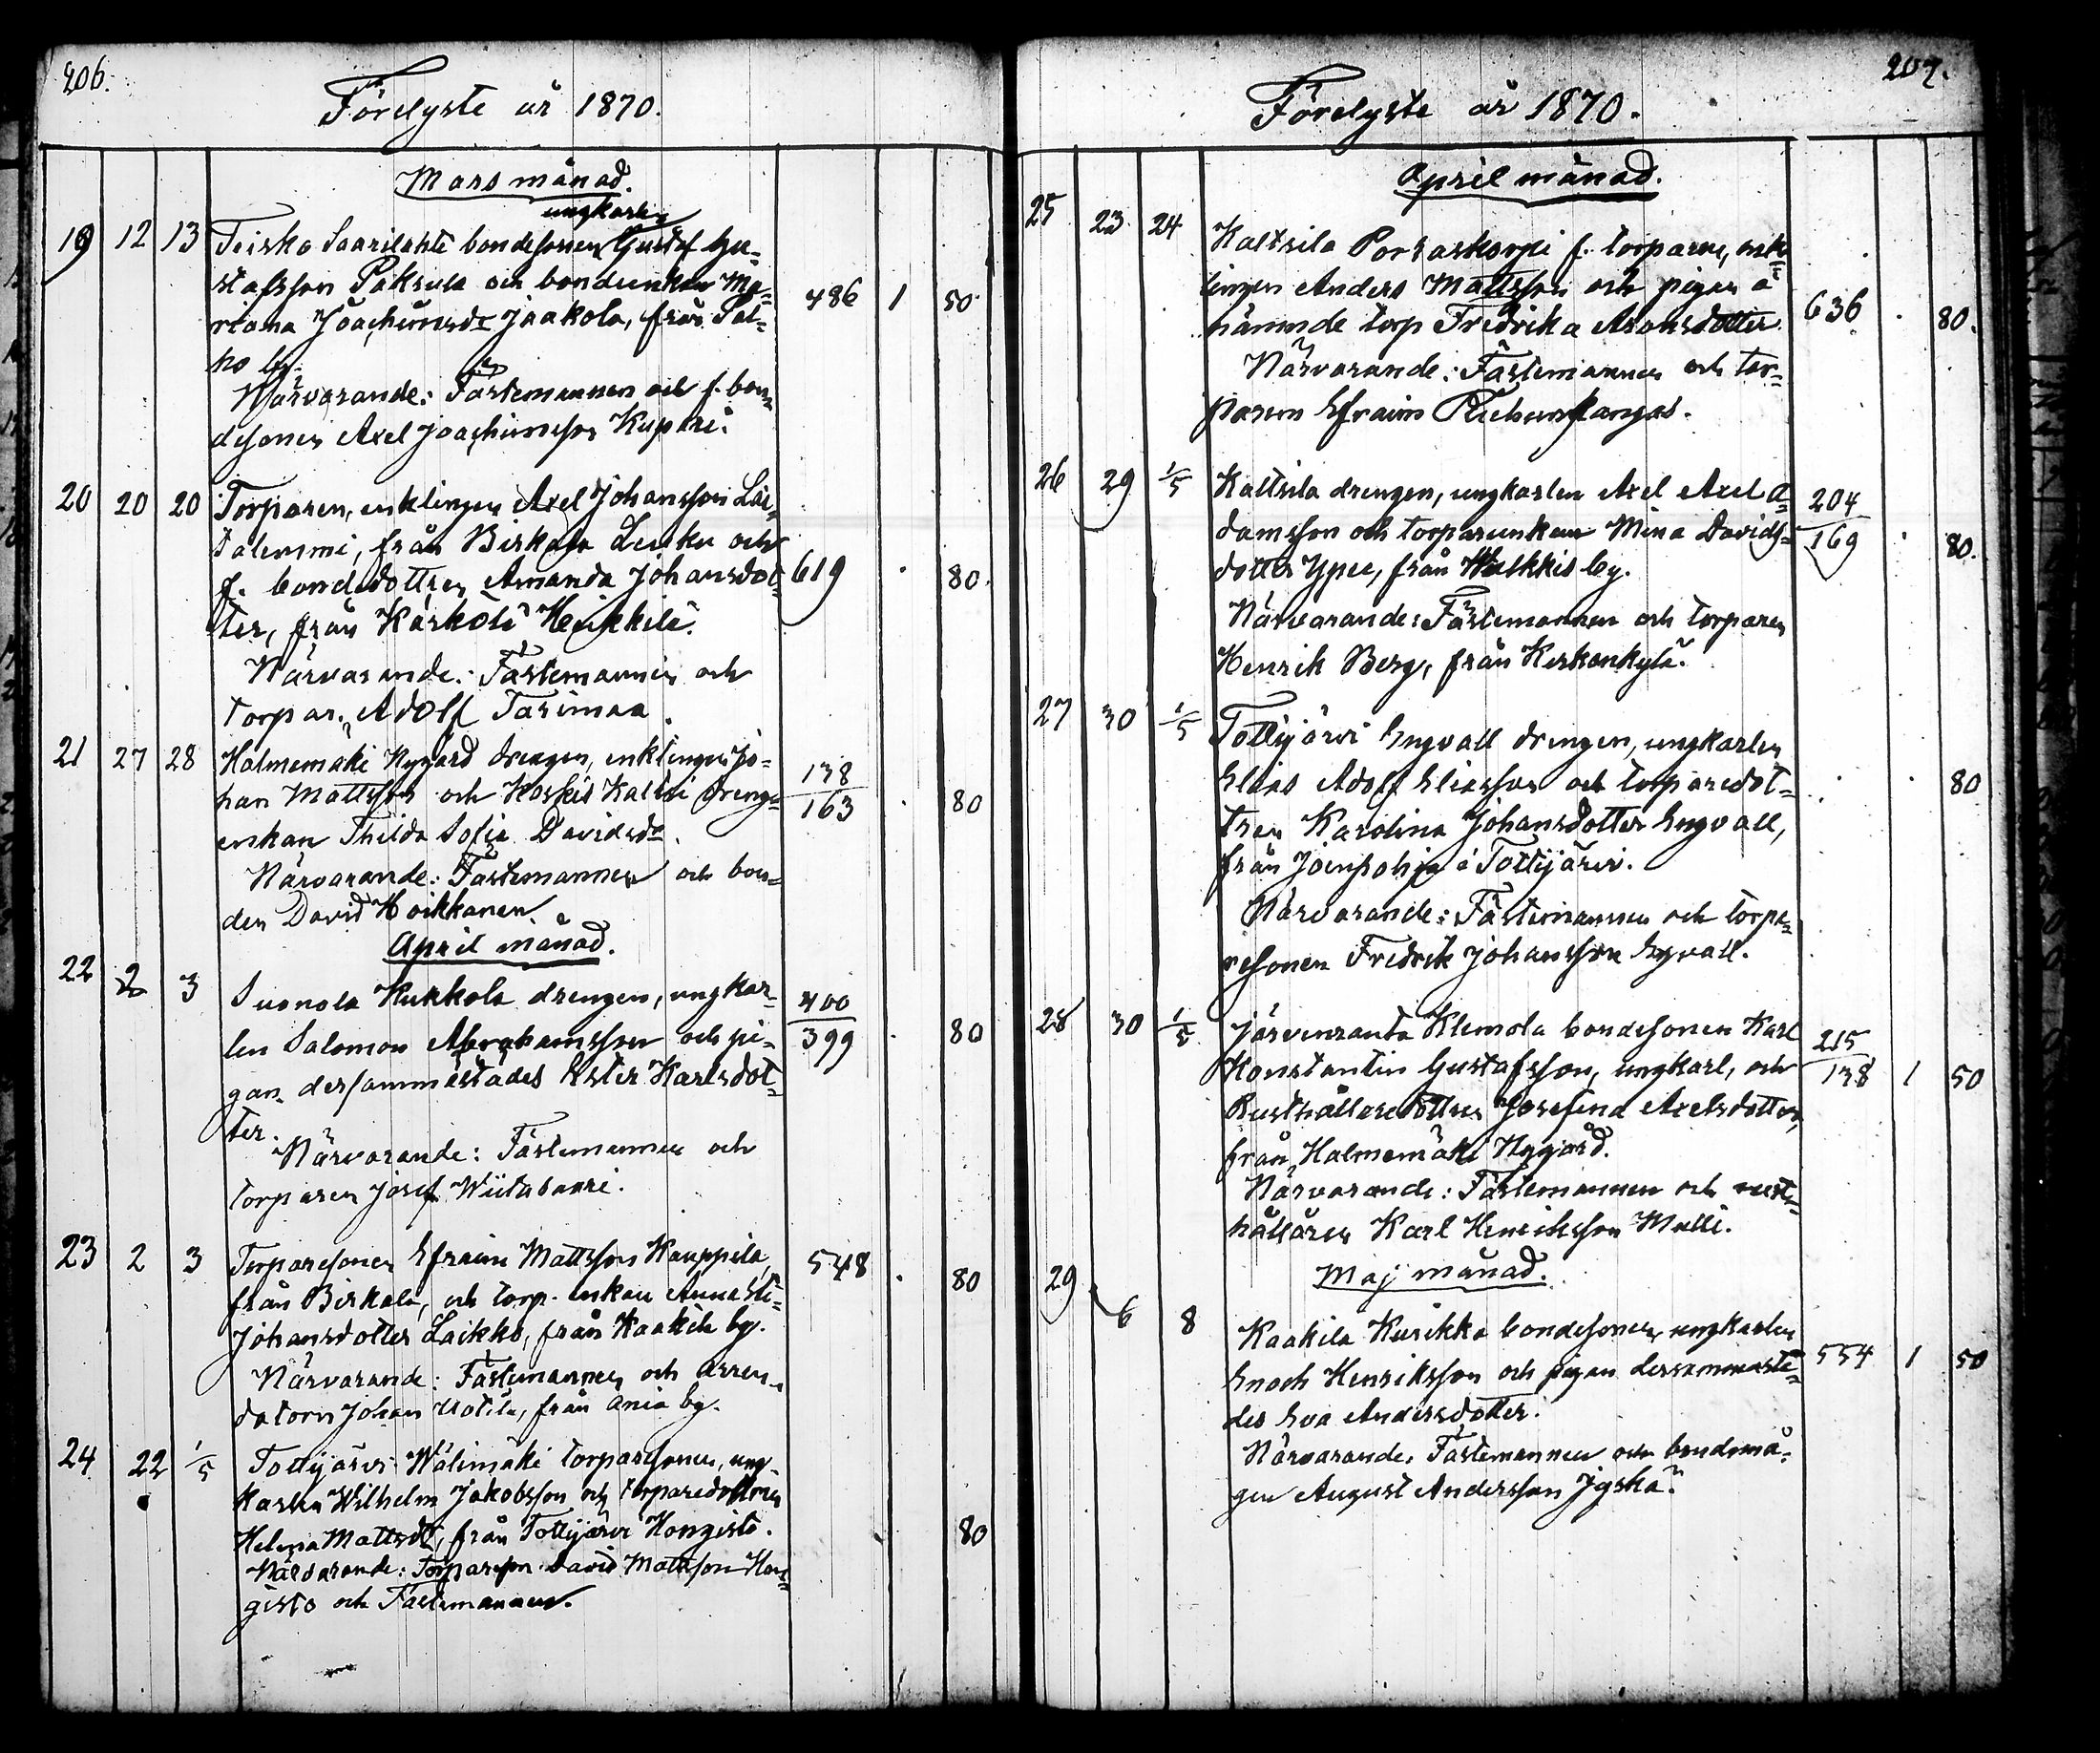 206.
Förelyste år 1870.
Mars månad.
ungkarlen
19 12 13 Teisko Saarilahti bondesonen Gustaf Gu-
stafsson Paksula och bondeenkan Ma-
riana Joachimsdr Jaakola, från
by.
486 1 50
Närvarande: Fästemannen och f. bon-
desonen Axel Joachimsson Kupari.
20 20 20 Torparen, enklingen Axel Johansson
från Birkala och
f. bondedottren Amanda Johansdot-
ter, från Kärkölä Heikkilä.
619 . 80.
Närvarande: Fästemannen och
torpar. Adolf Tarimaa.
21 27 28 Halmemäki Nygård drengen, enklingen Jo-
han Mattsson och Koskis Kaltsi dreng-
enkan Thilda Sofia Davidsdr.
138/163 . 80
Närvarande: Fästemannen och bon-
den David Hoikkanen.
April månad.
22 2 3 Suonola Kukkola drengen, ungkar-
len Salomon Abrahamsson och pi-
gan dersammastädes Ester Karlsdot-
ter.
400/399 . 80
Närvarande: Fästemannen och
torparen Josef Wiitasaari.
23 2 3 Torparesonen Efraim Mattsson Kauppila,
från Birkala, och torp. enkan Anna
Johansdotter Laikko, från Kaakila by.
548 . 80
Närvarande: Fästemannen och arren-
datorn Johan Uotila, från Ania by.
24 22 1/5 Tottijärvi Wälimäki torparesonen, ung-
karlen Wilhelm Jakobsson och torparedottren
Helena Mattsdr, från Tottijärvi Hongisto.
80
Närvarande: Torpareson David Mattsson Hon-
gisto och Fästemannen.
207.
Förelyste år 1870.
April månad.
25 23 24 Kaltsila Porraskorpi f. torparen, enk-
lingen Anders Mattsson och pigan å
nämnde torp Fredrika Aronsdotter.
636 . 80.
Närvarande: Fästemannen och tor-
paren Efraim
26 29 1/5 Kaltsila drengen, ungkarlen Axel Axel A-
damsson och torpareenkan Mina Davids-
dotter Ypee, från Hulkkis by.
204/169 . 80.
Närvarande: Fästemannen och torparen
Henrik Berg, från Kirkonkylä.
27 30 1/5 Tottijärvi Engvall drengen, ungkarlen
Elias Adolf Eliasson och torparedot-
tren Karolina Johansdotter Engvall,
från Joenpohja i Tottijärvi.
. . 80
Närvarande: Fästemannen och torpa-
resonen Fredrik Johansson Engvall.
28 30 1/5 Järvenranta Klemola bondesonen Karl
Konstantin Gustafsson, ungkarl, och
Rusthållaredottren Josefina Axelsdotter,
från Halmemäki Nygård.
215/138 1 50
Närvarande: Fästemannen och rust-
hållaren Karl Henriksson Mulli.
Maj månad.
29 6 8 Kaakila Kurikka bondesonen, ungkarlen
Enoch Henriksson och pigan dersammastä-
des Eva Andersdotter.
554 1 50
Närvarande: Fästemannen och bondemå-
gen August Andersson Jyskä.